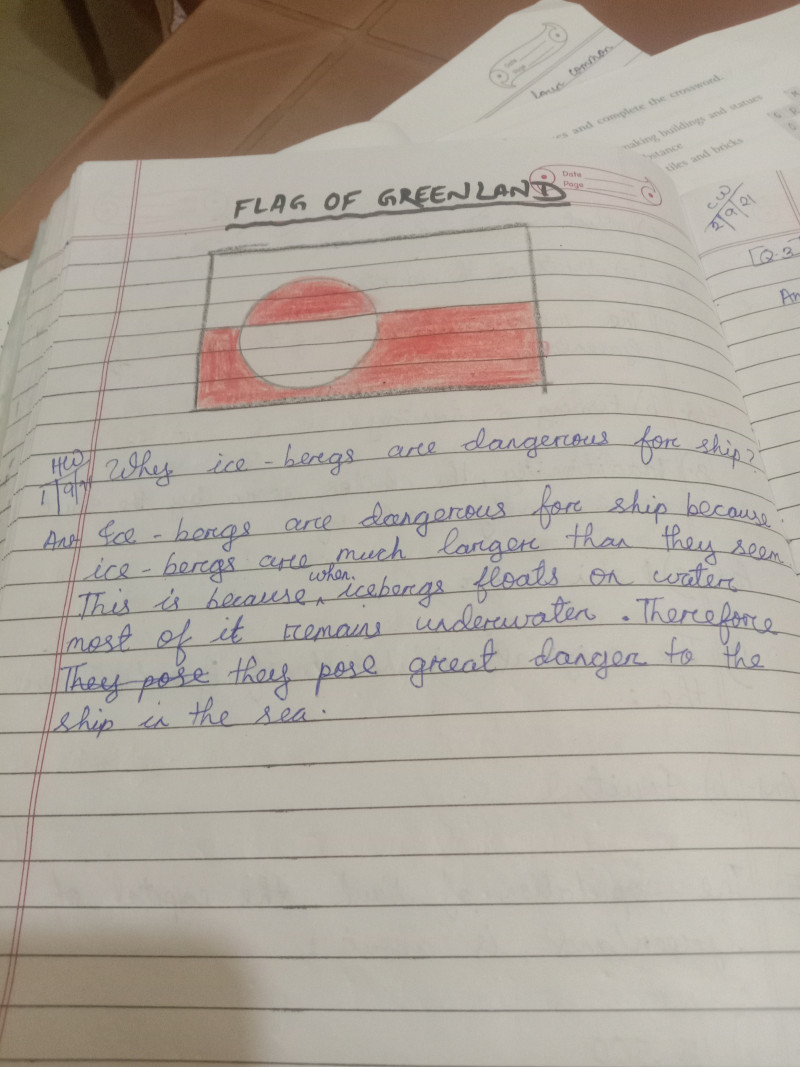 Date
Page
Laws common
s and complete the crossword.
making buildings and statues
stance
tiles and bricks
CW
2/9/21
Q.3
An
Date
Page
FLAG OF GREENLAND
HW
1/9/21
Why ice-bergs are dangerous for ship?
Ans Ice-bergs are dangerous for ship because
ice-bergs are much larger than they seem
This is because when icebergs floats on water
most of it remains underwater. Therefore
They pose they pose great danger to the
ship in the sea.